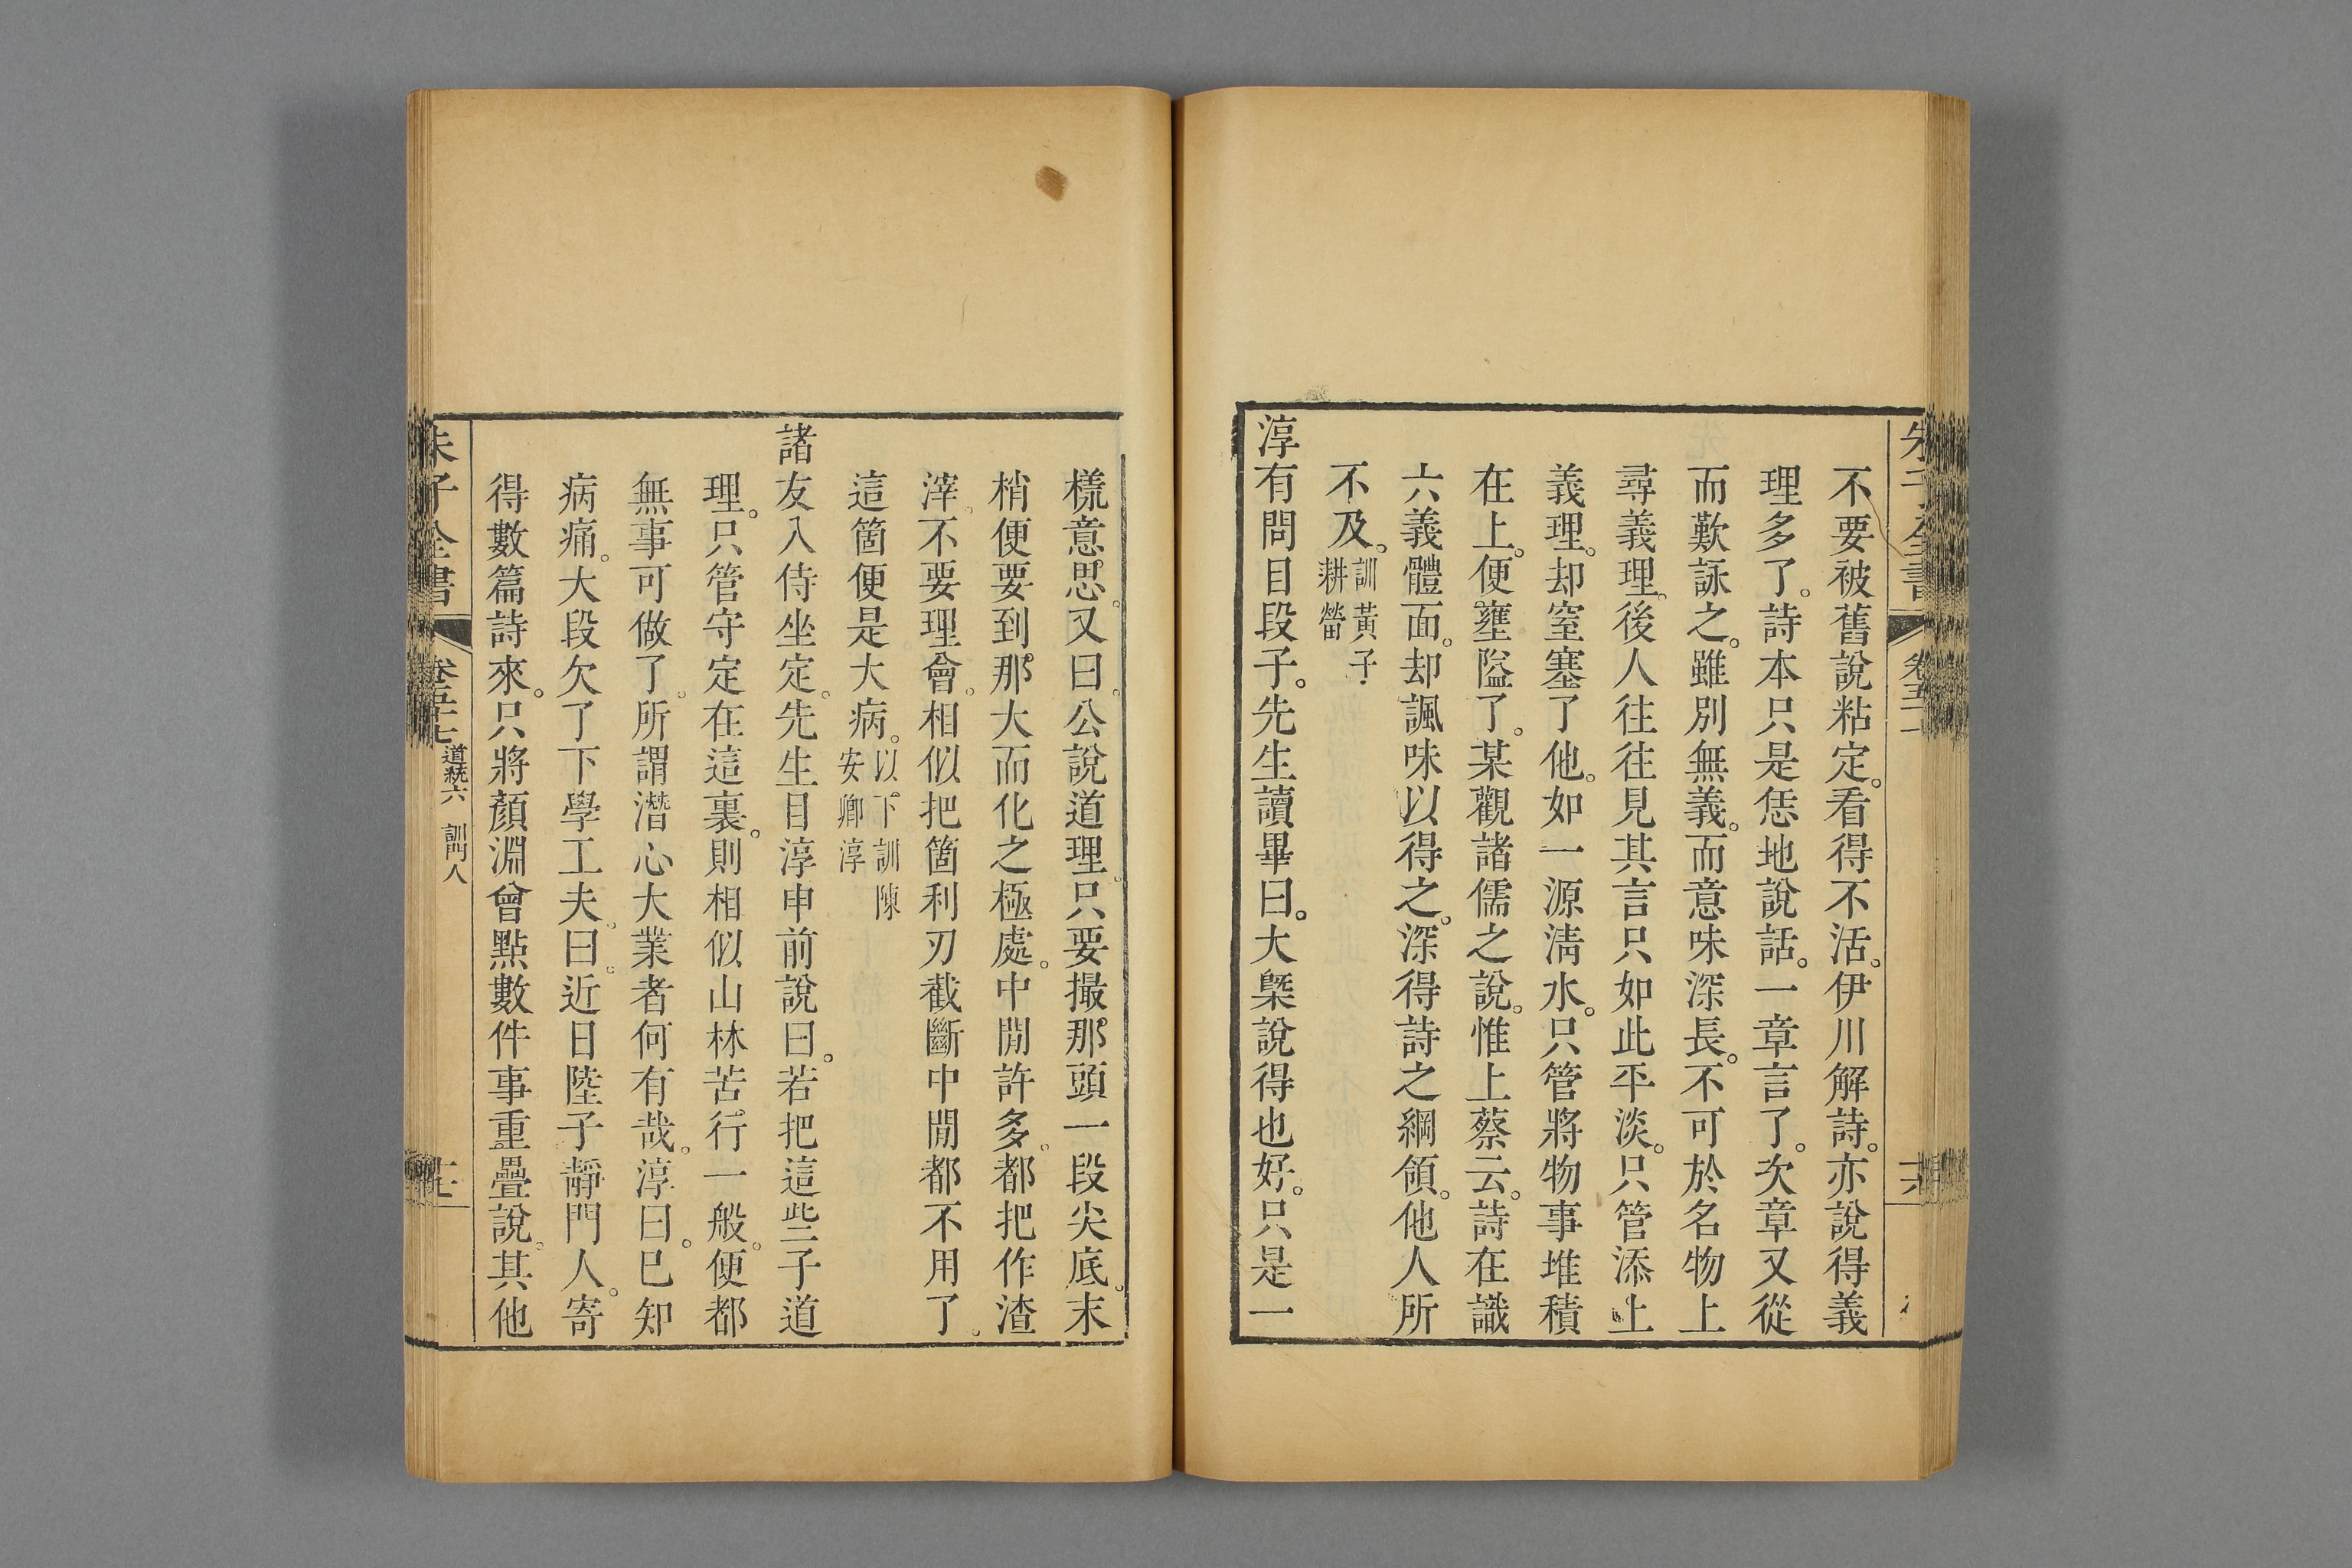 不要被舊說粘定。看得不活。伊川解詩。亦說得義
理多了。詩本只是恁地說話。一章言了。次章又從
而歎詠之。雖別無義。而意味深長。不可於名物上
尋義理。後人往往見其言只如此平淡。只管添上
義理。却窒塞了他。如一源淸水。只管將物事堆積
在上。便壅隘了。某觀諸儒之說。惟上蔡云。詩在識
六義體面。却諷味以得之。深得詩之綱領。他人所
不及。訓黃子耕䇓
淳有問目段子。先生讀畢曰。大槩說得也好。只是一
樣意思。又曰。公說道理。只要撮那頭一段尖底。末
梢便要到那大而化之極處。中閒許多。都把作渣
滓。不要理會。相似把箇利刃截斷中閒都不用了。
這箇便是大病。以下訓陳安卿淳
諸友入侍坐定。先生目淳申前說曰。若把這些子道
理。只管守定在這裏。則相似山林苦行一般。便都
無事可做了。所謂潛心大業者何有哉。淳曰。已知
病痛。大段欠了下學工夫。曰。近日陸子靜門人。寄
得數篇詩來。只將顏淵曾點數件事重疊說。其他
朱子全書 卷五十七 道統六 訓門人